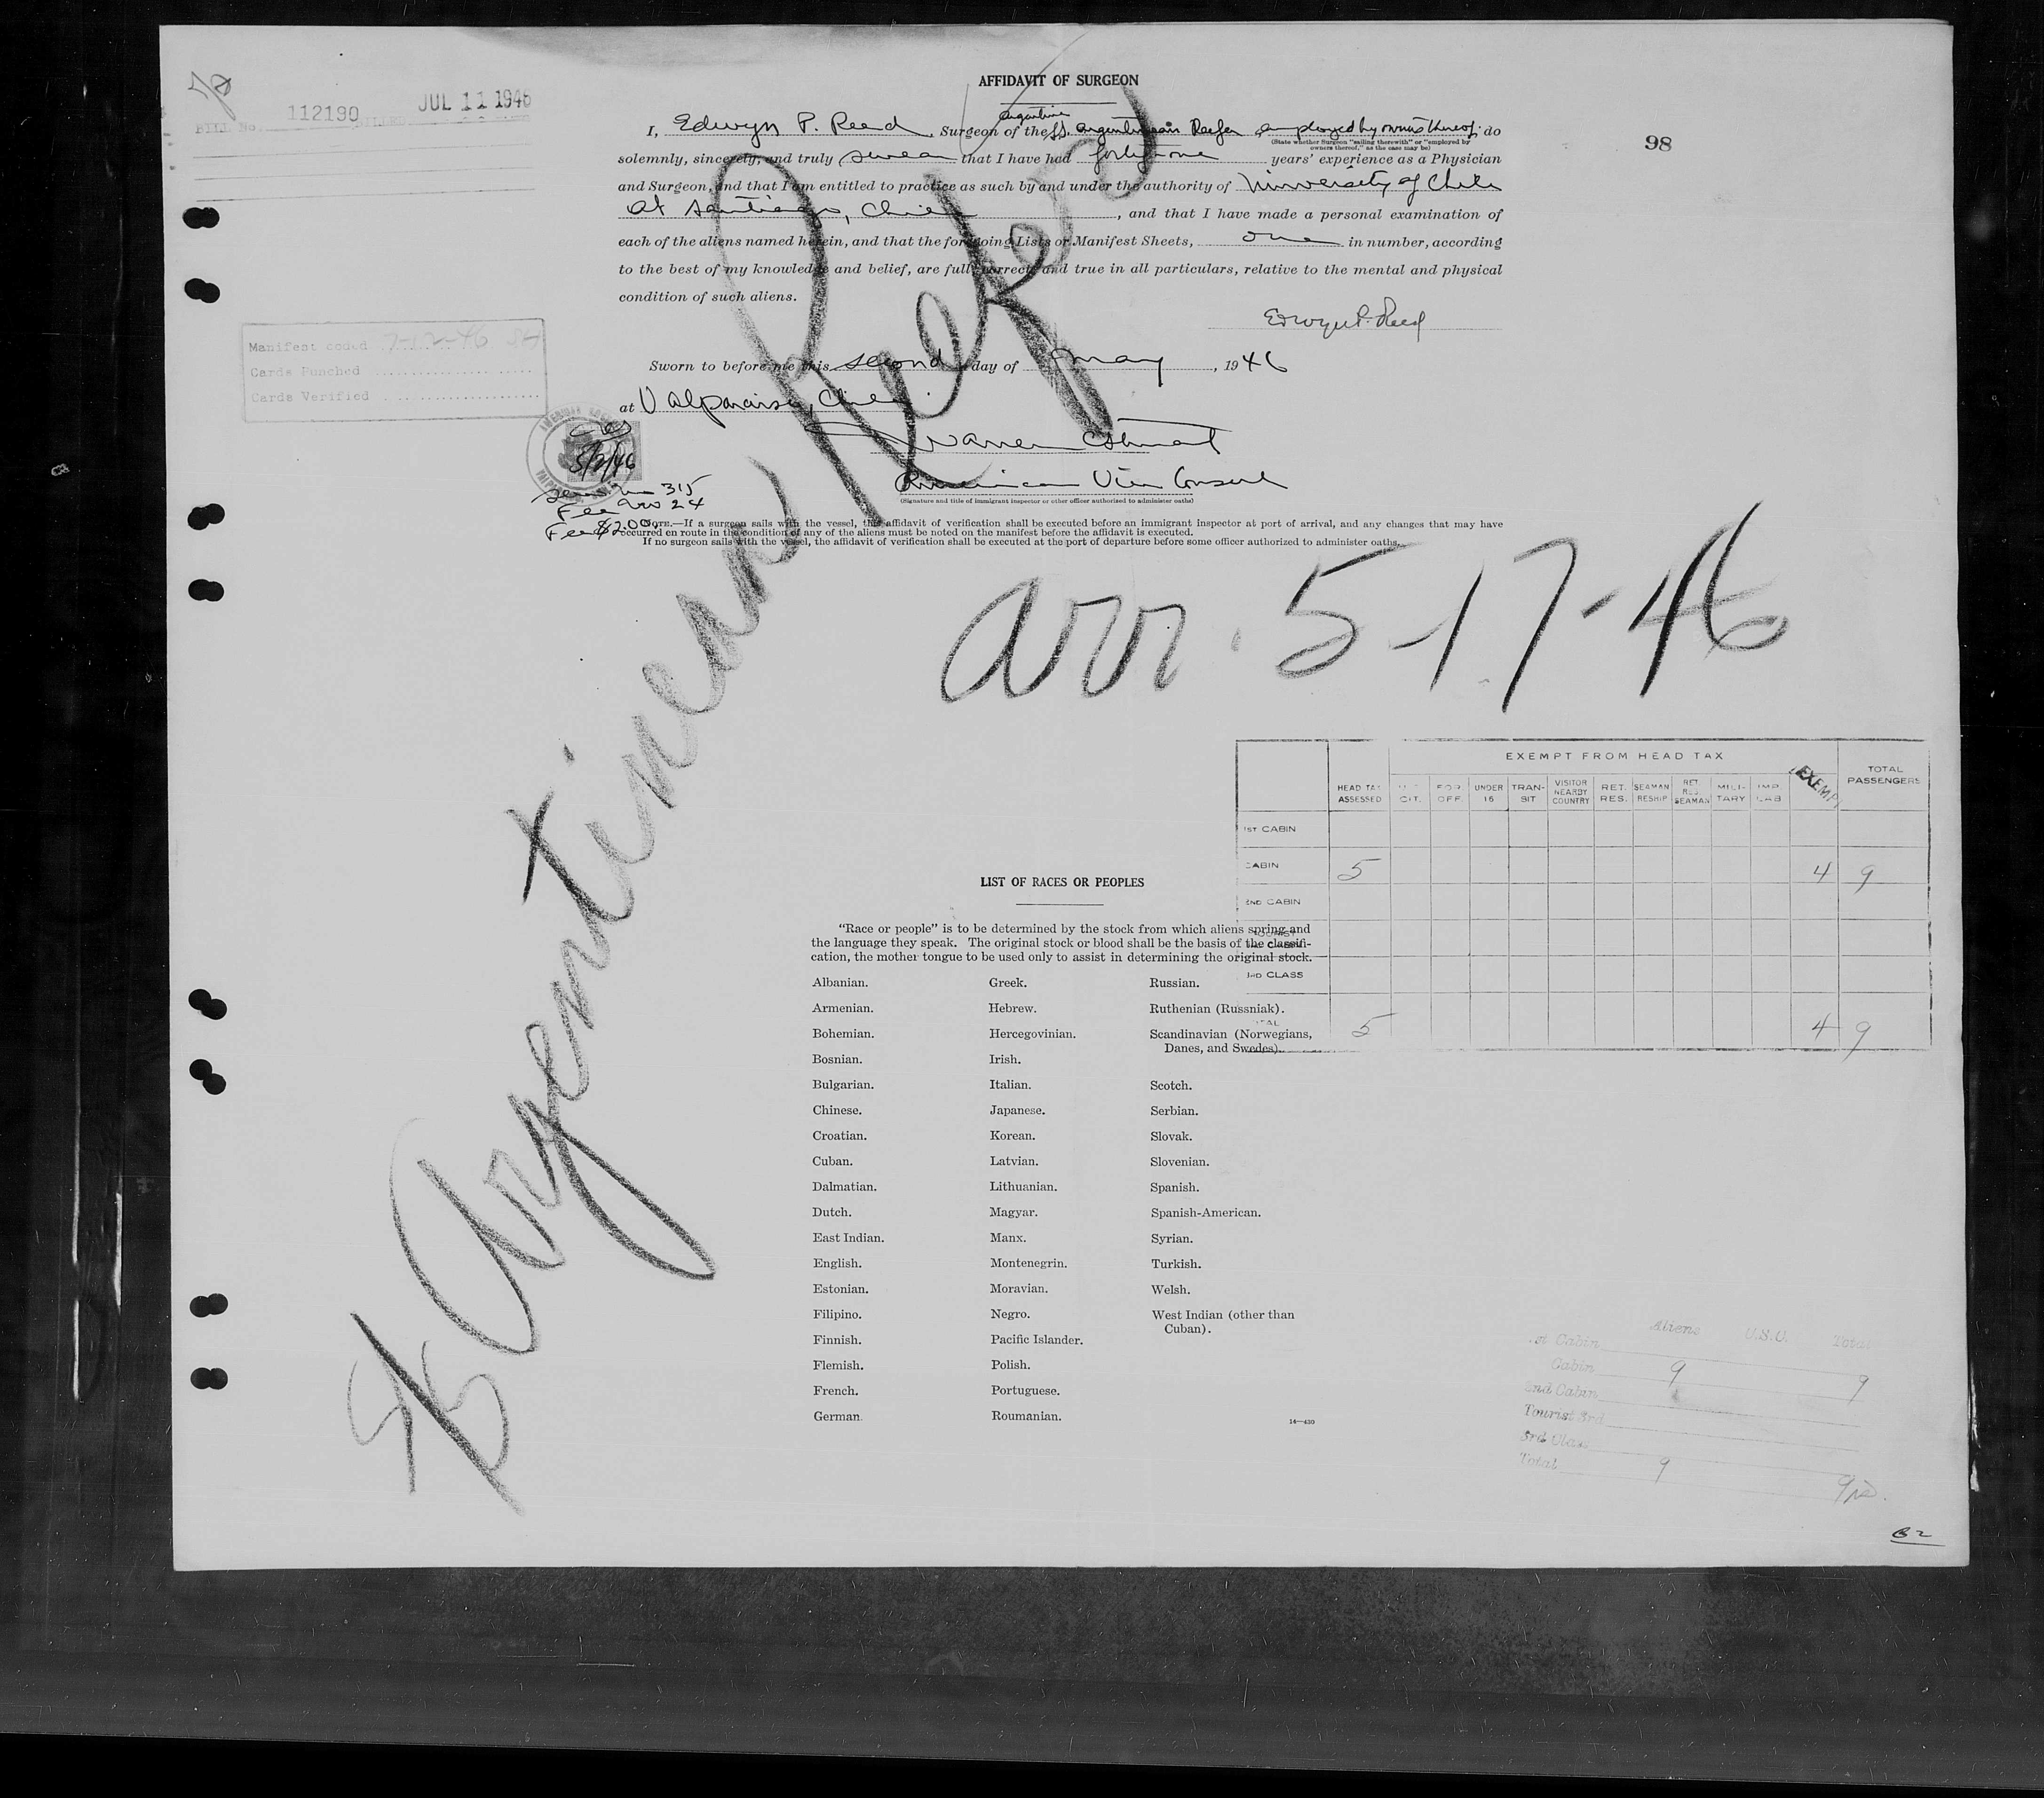 AFFIDAVIT OF SURGEON
98
JUL 11 1946
112190
BILL No. BILLED
argentine
I, Edwyn P. Reed, Surgeon of the SS. Reefer employed by owners thereof; do
(State whether Surgeon "sailing therewith" or "employed by
owners thereof," as the case may be)
solemnly, sincerely, and truly swear that I have had forty one years' experience as a Physician
and Surgeon, and that I am entitled to practice as such by and under the authority of University of Chile
at Santiago, Chile, and that I have made a personal examination of
each of the aliens named herein, and that the foregoing Lists or Manifest Sheets, one in number, according
to the best of my knowledge and belief, are full, correct, and true in all particulars, relative to the mental and physical
condition of such aliens.
Edwyn P. Reed
Manifest coded 7-12-46
Cards Punched
Cards Verified
Sworn to before me this second day of May, 1946
at Valparaiso, Chile.
Warren C Stewart
American Vice Consul
(Signature and title of immigrant inspector or other officer authorized to administer oaths)
5/2/46
315
Fee No 24
Fee $2.00
NOTE.—If a surgeon sails with the vessel, this affidavit of verification shall be executed before an immigrant inspector at port of arrival, and any changes that may have
occurred en route in the condition of any of the aliens must be noted on the manifest before the affidavit is executed.
If no surgeon sails with the vessel, the affidavit of verification shall be executed at the port of departure before some officer authorized to administer oaths.
SS Argentinean Reefer
arr. 5-17-46
EXEMPT FROM HEAD TAX
HEAD TAX ASSESSED
CIT.
FOR. OFF.
UNDER 16
TRAN-SIT
VISITOR NEARBY COUNTRY
RET. RES.
SEAMAN RESHIP
RET. RES. SEAMAN
MILI-TARY
IMP. LAB
EXEMPT
TOTAL PASSENGERS
1ST CABIN
CABIN 5 4 9
2ND CABIN
TOURIST
3RD CLASS
TOTAL 5 4 9
LIST OF RACES OR PEOPLES
"Race or people" is to be determined by the stock from which aliens spring and
the language they speak. The original stock or blood shall be the basis of the classifi-
cation, the mother tongue to be used only to assist in determining the original stock.
Albanian. Greek. Russian.
Armenian. Hebrew. Ruthenian (Russniak).
Bohemian. Hercegovinian. Scandinavian (Norwegians,
Danes, and Swedes).
Bosnian. Irish.
Bulgarian. Italian. Scotch.
Chinese. Japanese. Serbian.
Croatian. Korean. Slovak.
Cuban. Latvian. Slovenian.
Dalmatian. Lithuanian. Spanish.
Dutch. Magyar. Spanish-American.
East Indian. Manx. Syrian.
English. Montenegrin. Turkish.
Estonian. Moravian. Welsh.
Filipino. Negro. West Indian (other than
Cuban).
Finnish. Pacific Islander.
Flemish. Polish.
French. Portuguese.
German. Roumanian.
14—430
Aliens U.S.C. Total
1st Cabin
Cabin 9 9
2nd Cabin
Tourist 3rd
3rd Class
Total 9 9